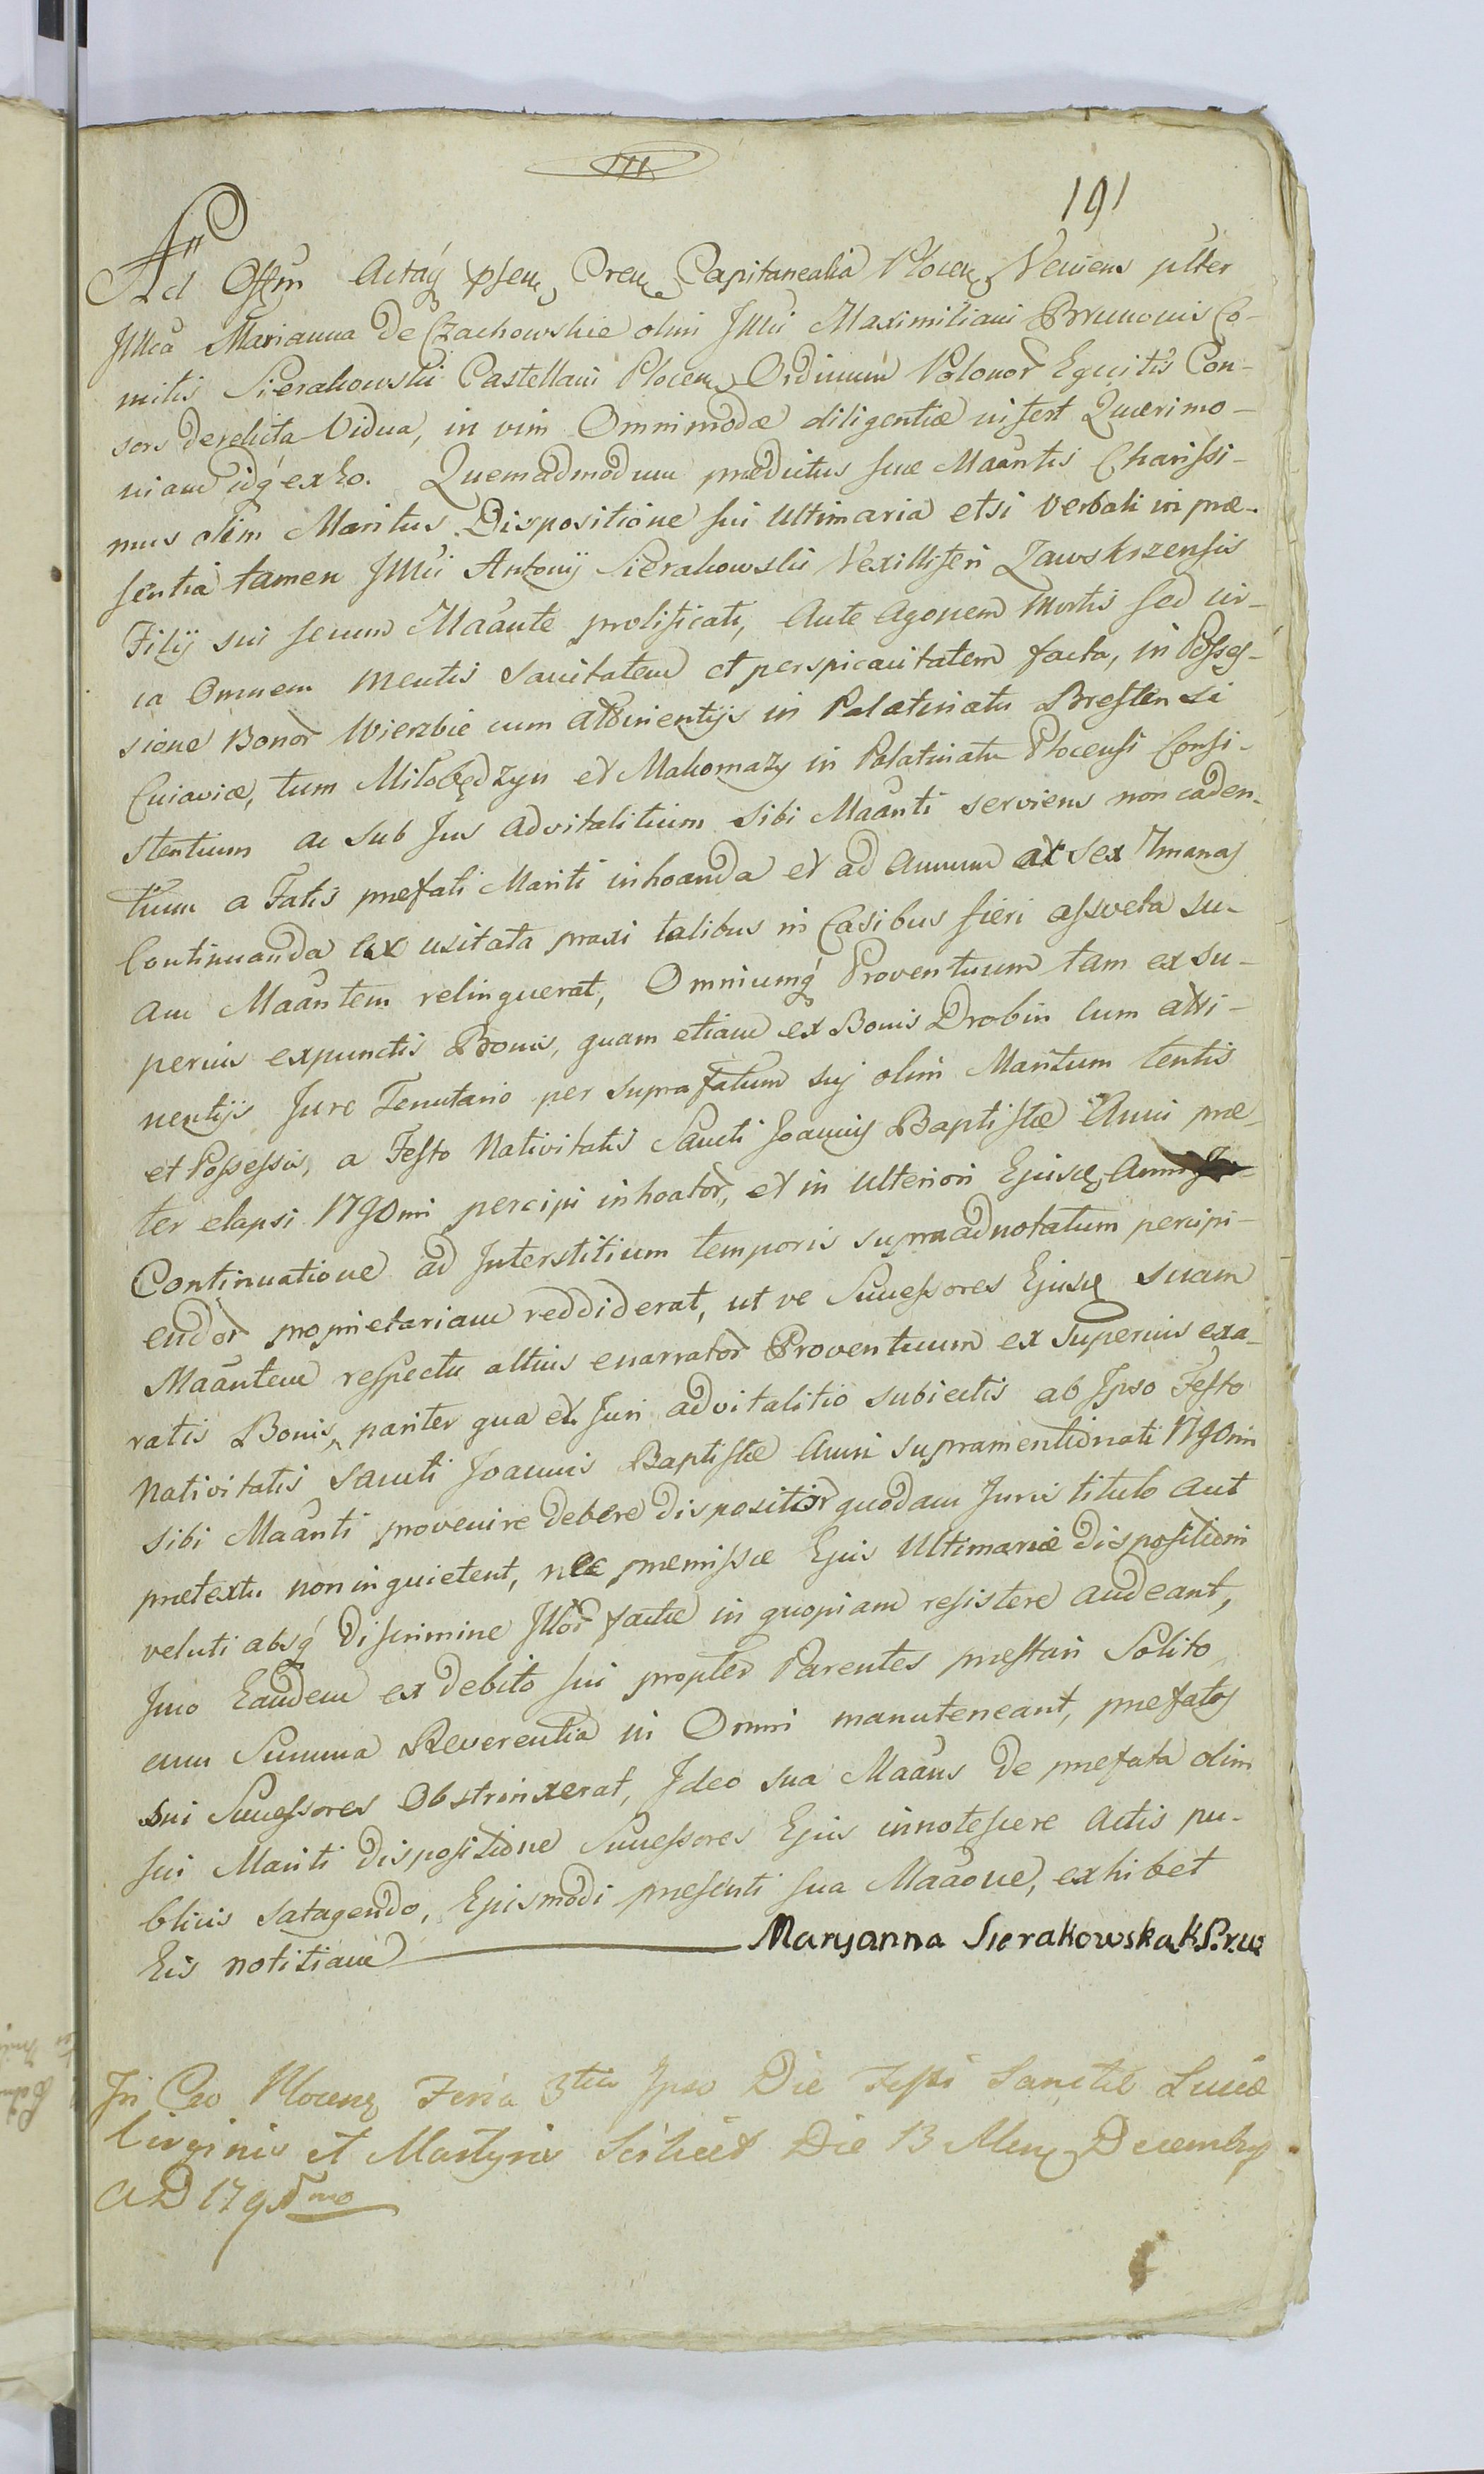 191
Ad Offm Actaq psen Cren Capitanealia Plocen Veniens pltter
Illca Marianna de Czachowskie olim Illii Maximiliani Brunonis Co-
mitis Sierakowski Castellani Plocen, Ordinum Polonor Equitis Con-
sors derelicta Vidua, in vim Omnimodæ diligentiæ infert Quærimo-
niam idq exho. Quemadmodum prædictus suæ Maantis Charissi-
mus olim Maritus Dispositione sui Ultimaria etsi verbali in præ-
sentia tamen Illii Antonij Sierakowski Vexilliferi Zawskrzensis
Filij sui secum Maante prolificati, Ante Agonem Mortis sed cir-
ca Omnem mentis sanitatem et perspicacitatem facta, in Posses-
sione Bonor Wierzbie cum attinentijs in Palatinatu Brestensi
Cuiaviæ, tum Miłobędzyn et Makomazy in Palatinatu Plocensi Consi-
stentium ac sub Jus advitalitium sibi Maanti serviens non caden-
tium a Fatis præfati Mariti inhoanda et ad Annum et sex 7manas
Continuanda lex usitata praxi talibus in Casibus fieri assveta su-
am Maantem relinquerat, Omniumq Proventuum tam ex su-
perius expunctis Bonis, quam etiam ex Bonis Drobin cum atti-
nentijs Jure Tenutario per suprafatum suj olim Maritum tentis
et Possessis, a Festo Nativitatis Sancti Joannis Baptistæ Anni præ-
ter elapsi 1790mi percipi inhoator, et in ulteriori Ejusd Anni
Continuatione ad Interstitium temporis supraadnotatum percipi-
endor proprietariam reddiderat, ut ve Successores Ejusd suam
Maantem respectu altius enarrator Proventuum ex superius exa-
ratis Bonis, pariter qua et Juri advitalitio subiectis ab Ipso Festo
Nativitatis Sancti Joannis Baptistæ Anni supramentionati 1790mi
sibi Maanti provenire debere dispositor quodam Juris titulo aut
prætextu non inquietent, nec præmissæ Ejus Ultimariæ dispositioni
veluti absq discrimine Illor factæ in quopiam resistere audeant,
Imo Eandem ex debito sui propter Parentes præstari Solito
cum Summa Reverentia in Omni manuteneant, præfatos
sui Successores Obstrinxerat, Ideo sua Maans de præfata olim
sui Mariti dispositione Successores Ejus innotescere Actis pu-
blicis satagendo, Ejusmodi præsenti sua Maaone, exhibet
Eis notitiam Maryanna Sierakowska K.P. r.w
In Cro Plocen Feria 3tia Ipso Die Festi Sanctæ Luciæ
Virginis et Martyris Scilicet Die 13 Mens Decembris
AD 1791mo